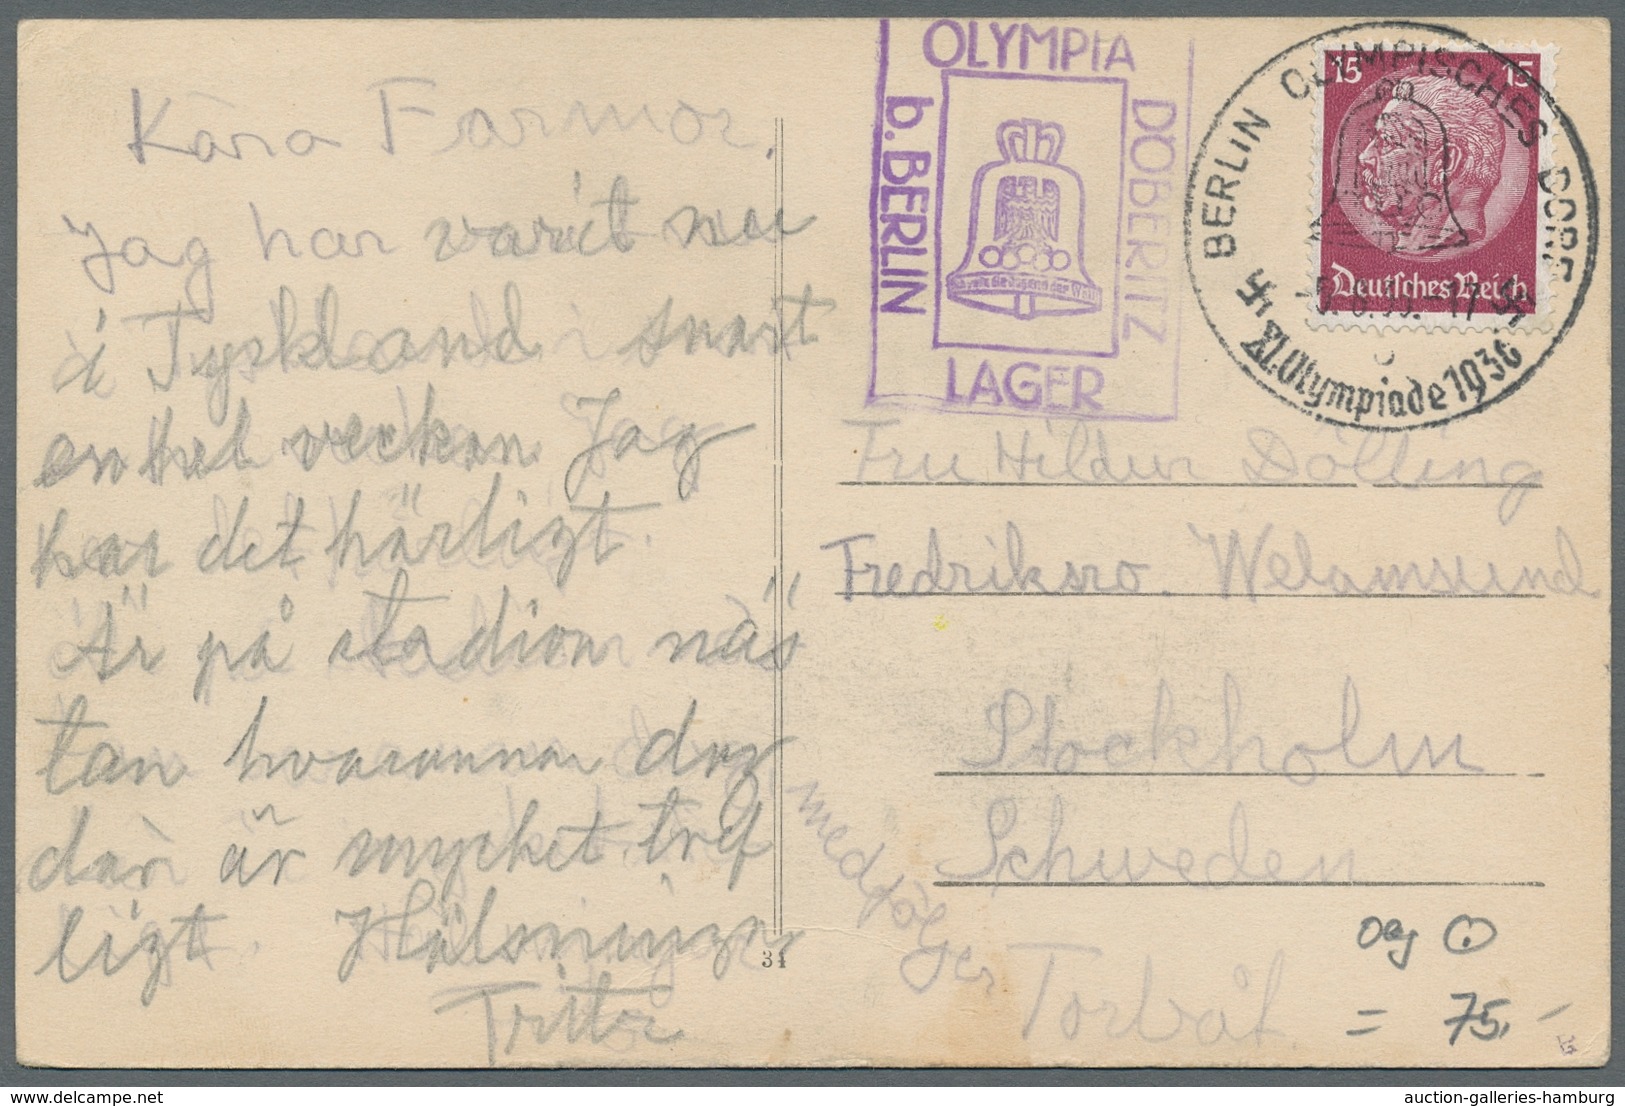 Kära Farmor.
Jag har varit nu
i Tyskland i snart
en hel veckan Jag
har det härligt.
Är på stadion näs
tan varannan dag
där är mycket tref
ligt. Hälsningar
34
OLYMPIA
b. BERLIN
DÖBERITZ
LAGER
Ich rufe die Jugend der Welt
BERLIN OLYMPISCHES DORF
XI. Olympiade 1936
15 15
Deutsches Reich
Fru Hildur Dölling
Fredriksro. Welamsund
Stockholm
Schweden
medföljer
Torbåt
= 75,-
auction-galleries-hamburg